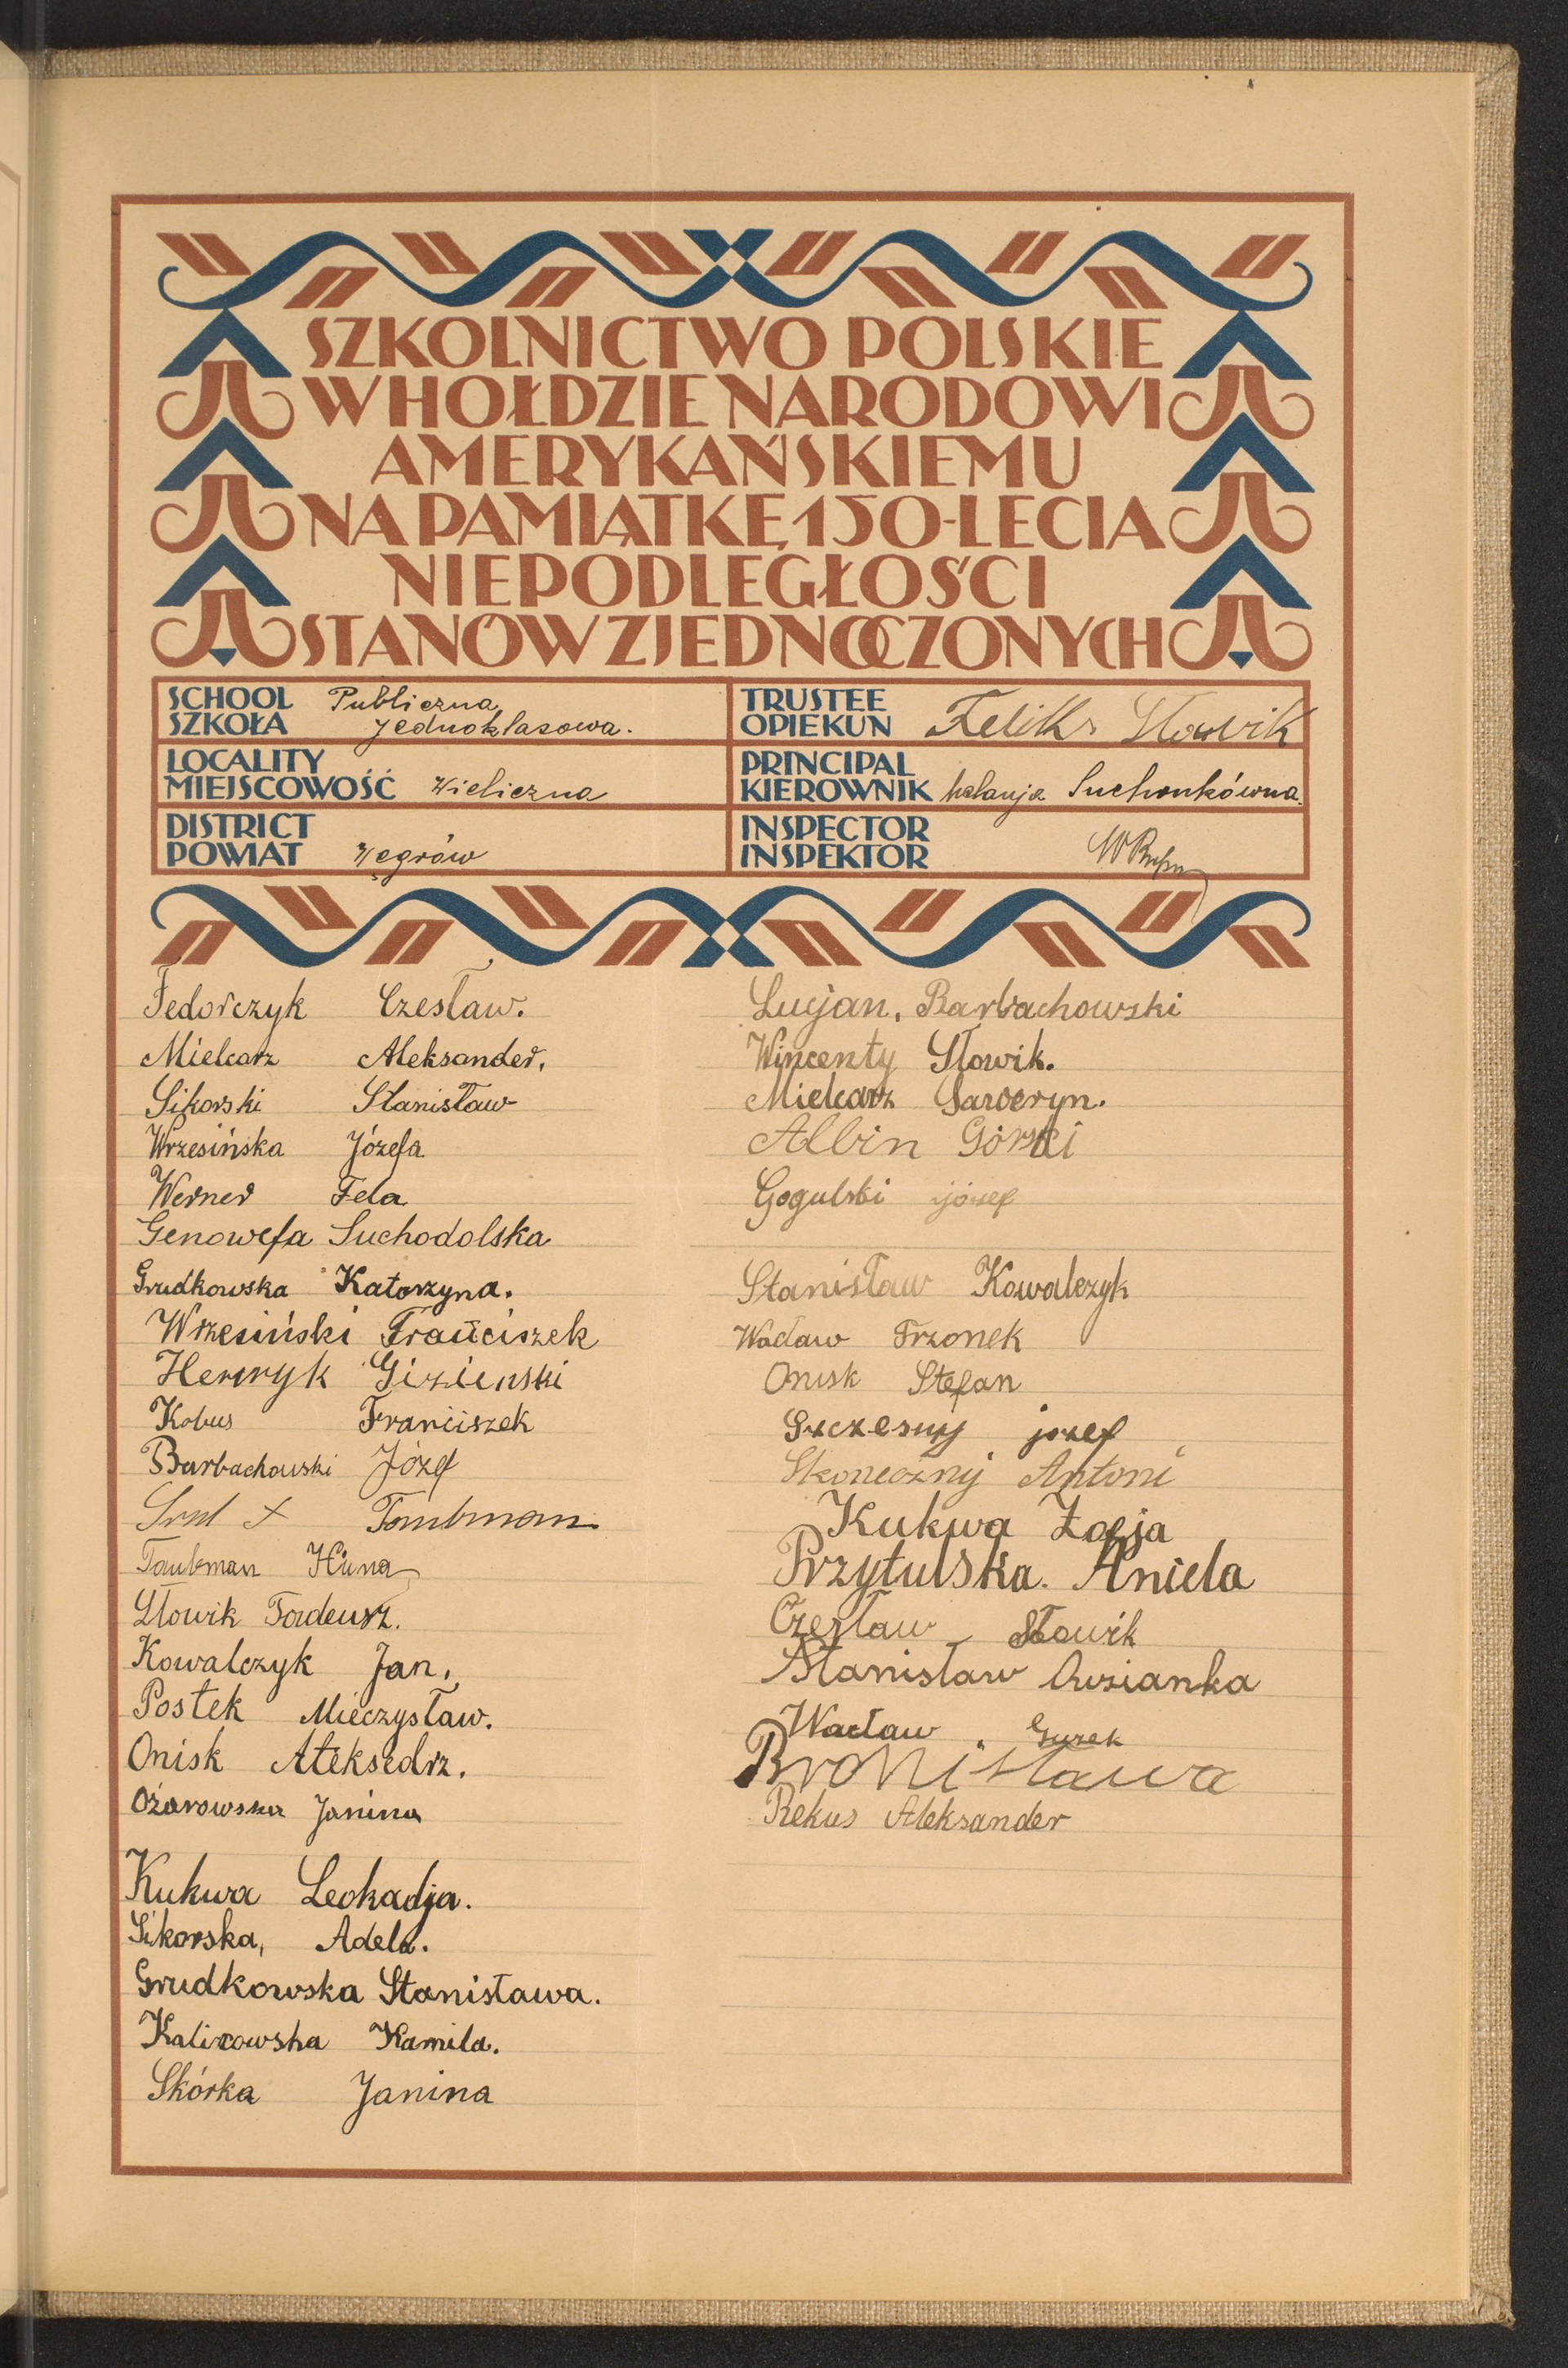 SZKOLNICTWO POLSKIE
W HOŁDZIE NARODOWI
AMERYKAŃSKIEMU
NA PAMIĄTKĘ 150-LECIA
NIEPODLEGŁOŚCI
STANÓW ZJEDNOCZONYCH
SCHOOL
SZKOŁA
Publiczna
Jednoklasowa.
TRUSTEE
OPIEKUN
Feliks Słowik
LOCALITY
MIEJSCOWOŚĆ
Wieliczna
PRINCIPAL
KIEROWNIK
Helanja Suchonkówna.
DISTRICT
POWIAT
Węgrów
INSPECTOR
INSPEKTOR
Fedorczyk Czesław.
Mielcarz Aleksander.
Sikorski Stanisław
Wrzesińska Józefa
Werner Fela
Genowefa Suchodolska
Grudkowska Katarzyna.
Wrzesiński Franciszek
Henryk Giziński
Kobus Franciszek
Barbachowski Józef
Taubman
Taubman
Słowik Tadeusz.
Kowalczyk Jan.
Postek Mieczysław.
Onisk Aleksedrz.
Ożarowska Janina
Kukwa Leokadja.
Sikorska, Adela.
Grudkowska Stanisława.
Kalixowska Kamila.
Skórka Janina
Lucjan, Barbachowski
Wincenty Słowik.
Mielcarz Saweryn.
Albin Górski
Gogulski józef
Stanisław Kowalczyk
Wacław Trzonek
Onisk Stefan
Szczesny jozef
Skoneczny Antoni
Kukwa Zofja
Przytulska. Aniela
Czesław Słowik
Stanisław Owsianka
Wacław Gyzek
Bronisława
Rekus Aleksander